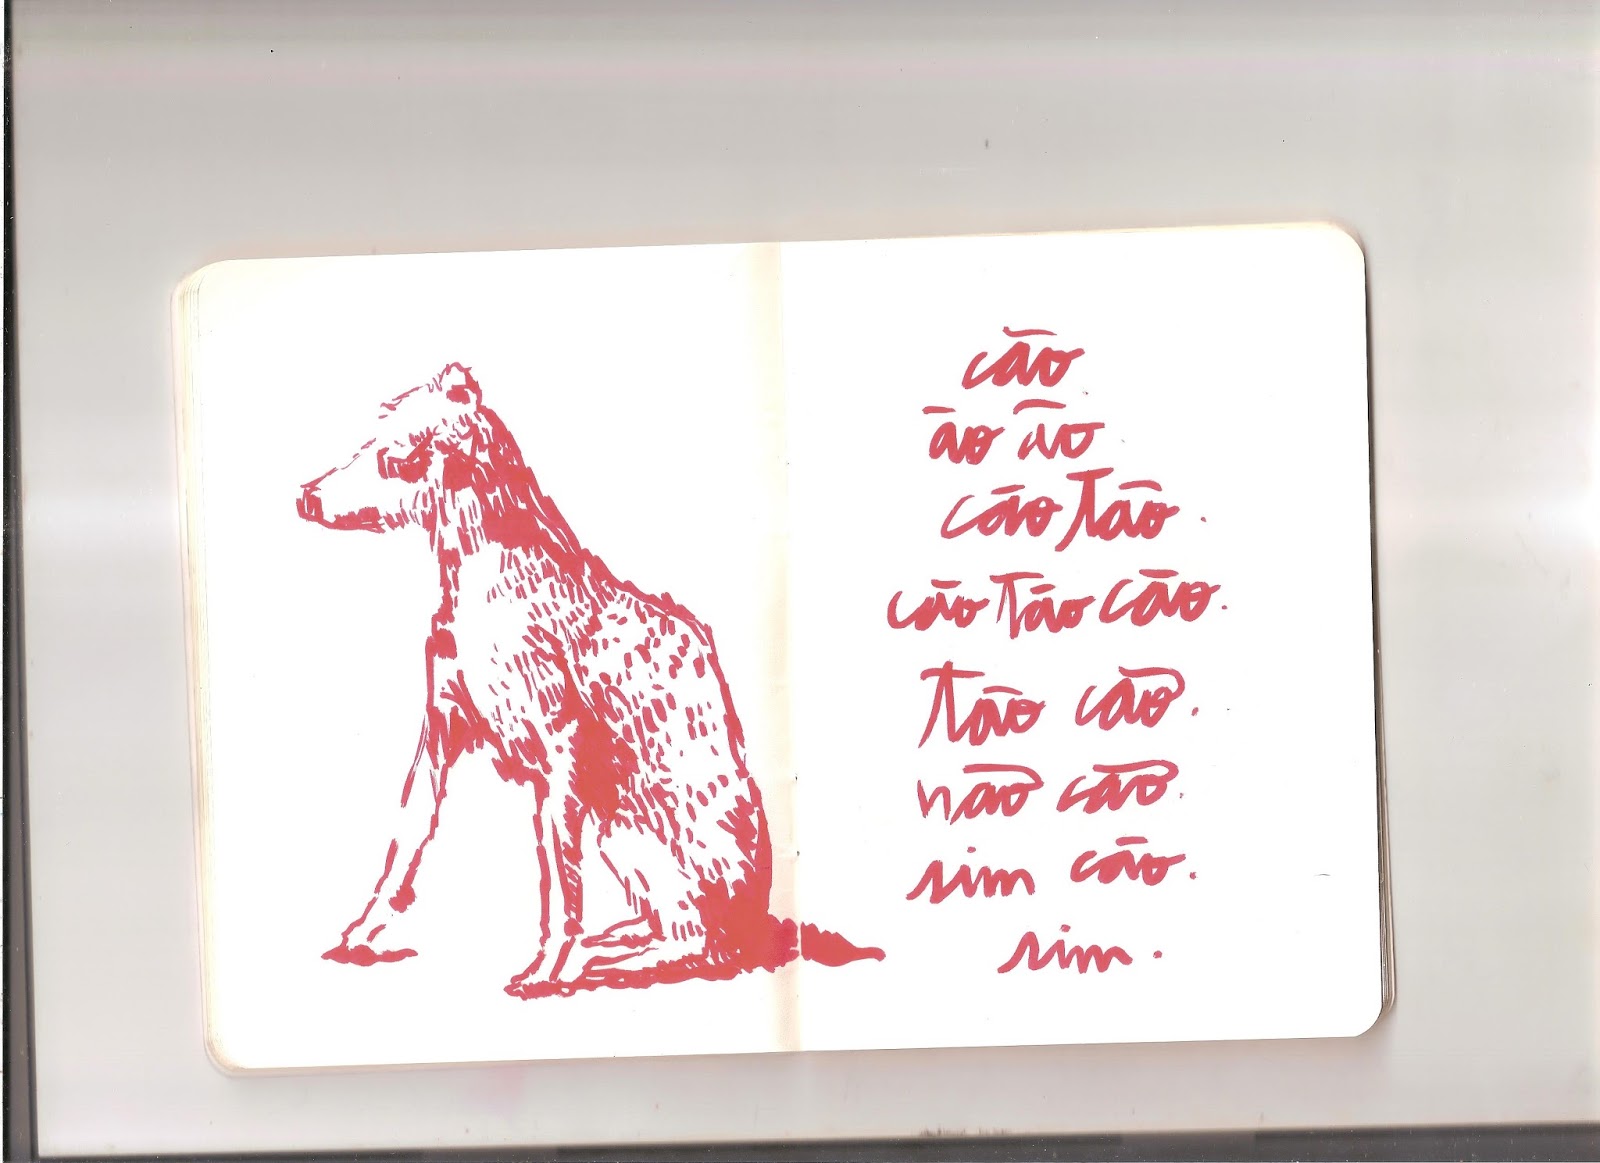 cão
ão ão
cão tão.
cão tão cão.
tão cão.
não cão.
sim cão.
sim.